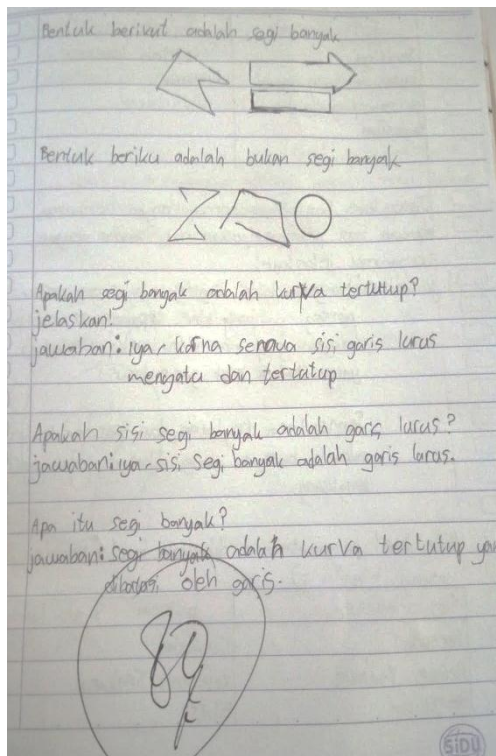 Bentuk berikut adalah segi banyak
Bentuk beriku adalah bukan segi banyak
Apakah segi banyak adalah kurva tertutup?
jelaskan!
jawaban: iya, karna semua sisi garis lurus
mengatu dan tertutup
Apakah sisi segi banyak adalah garis lurus?
jawaban: iya, sisi segi banyak adalah garis lurus.
Apa itu segi banyak?
jawaban: segi banyak adalah kurva tertutup yan
dibatasi oleh garis.
SIDU